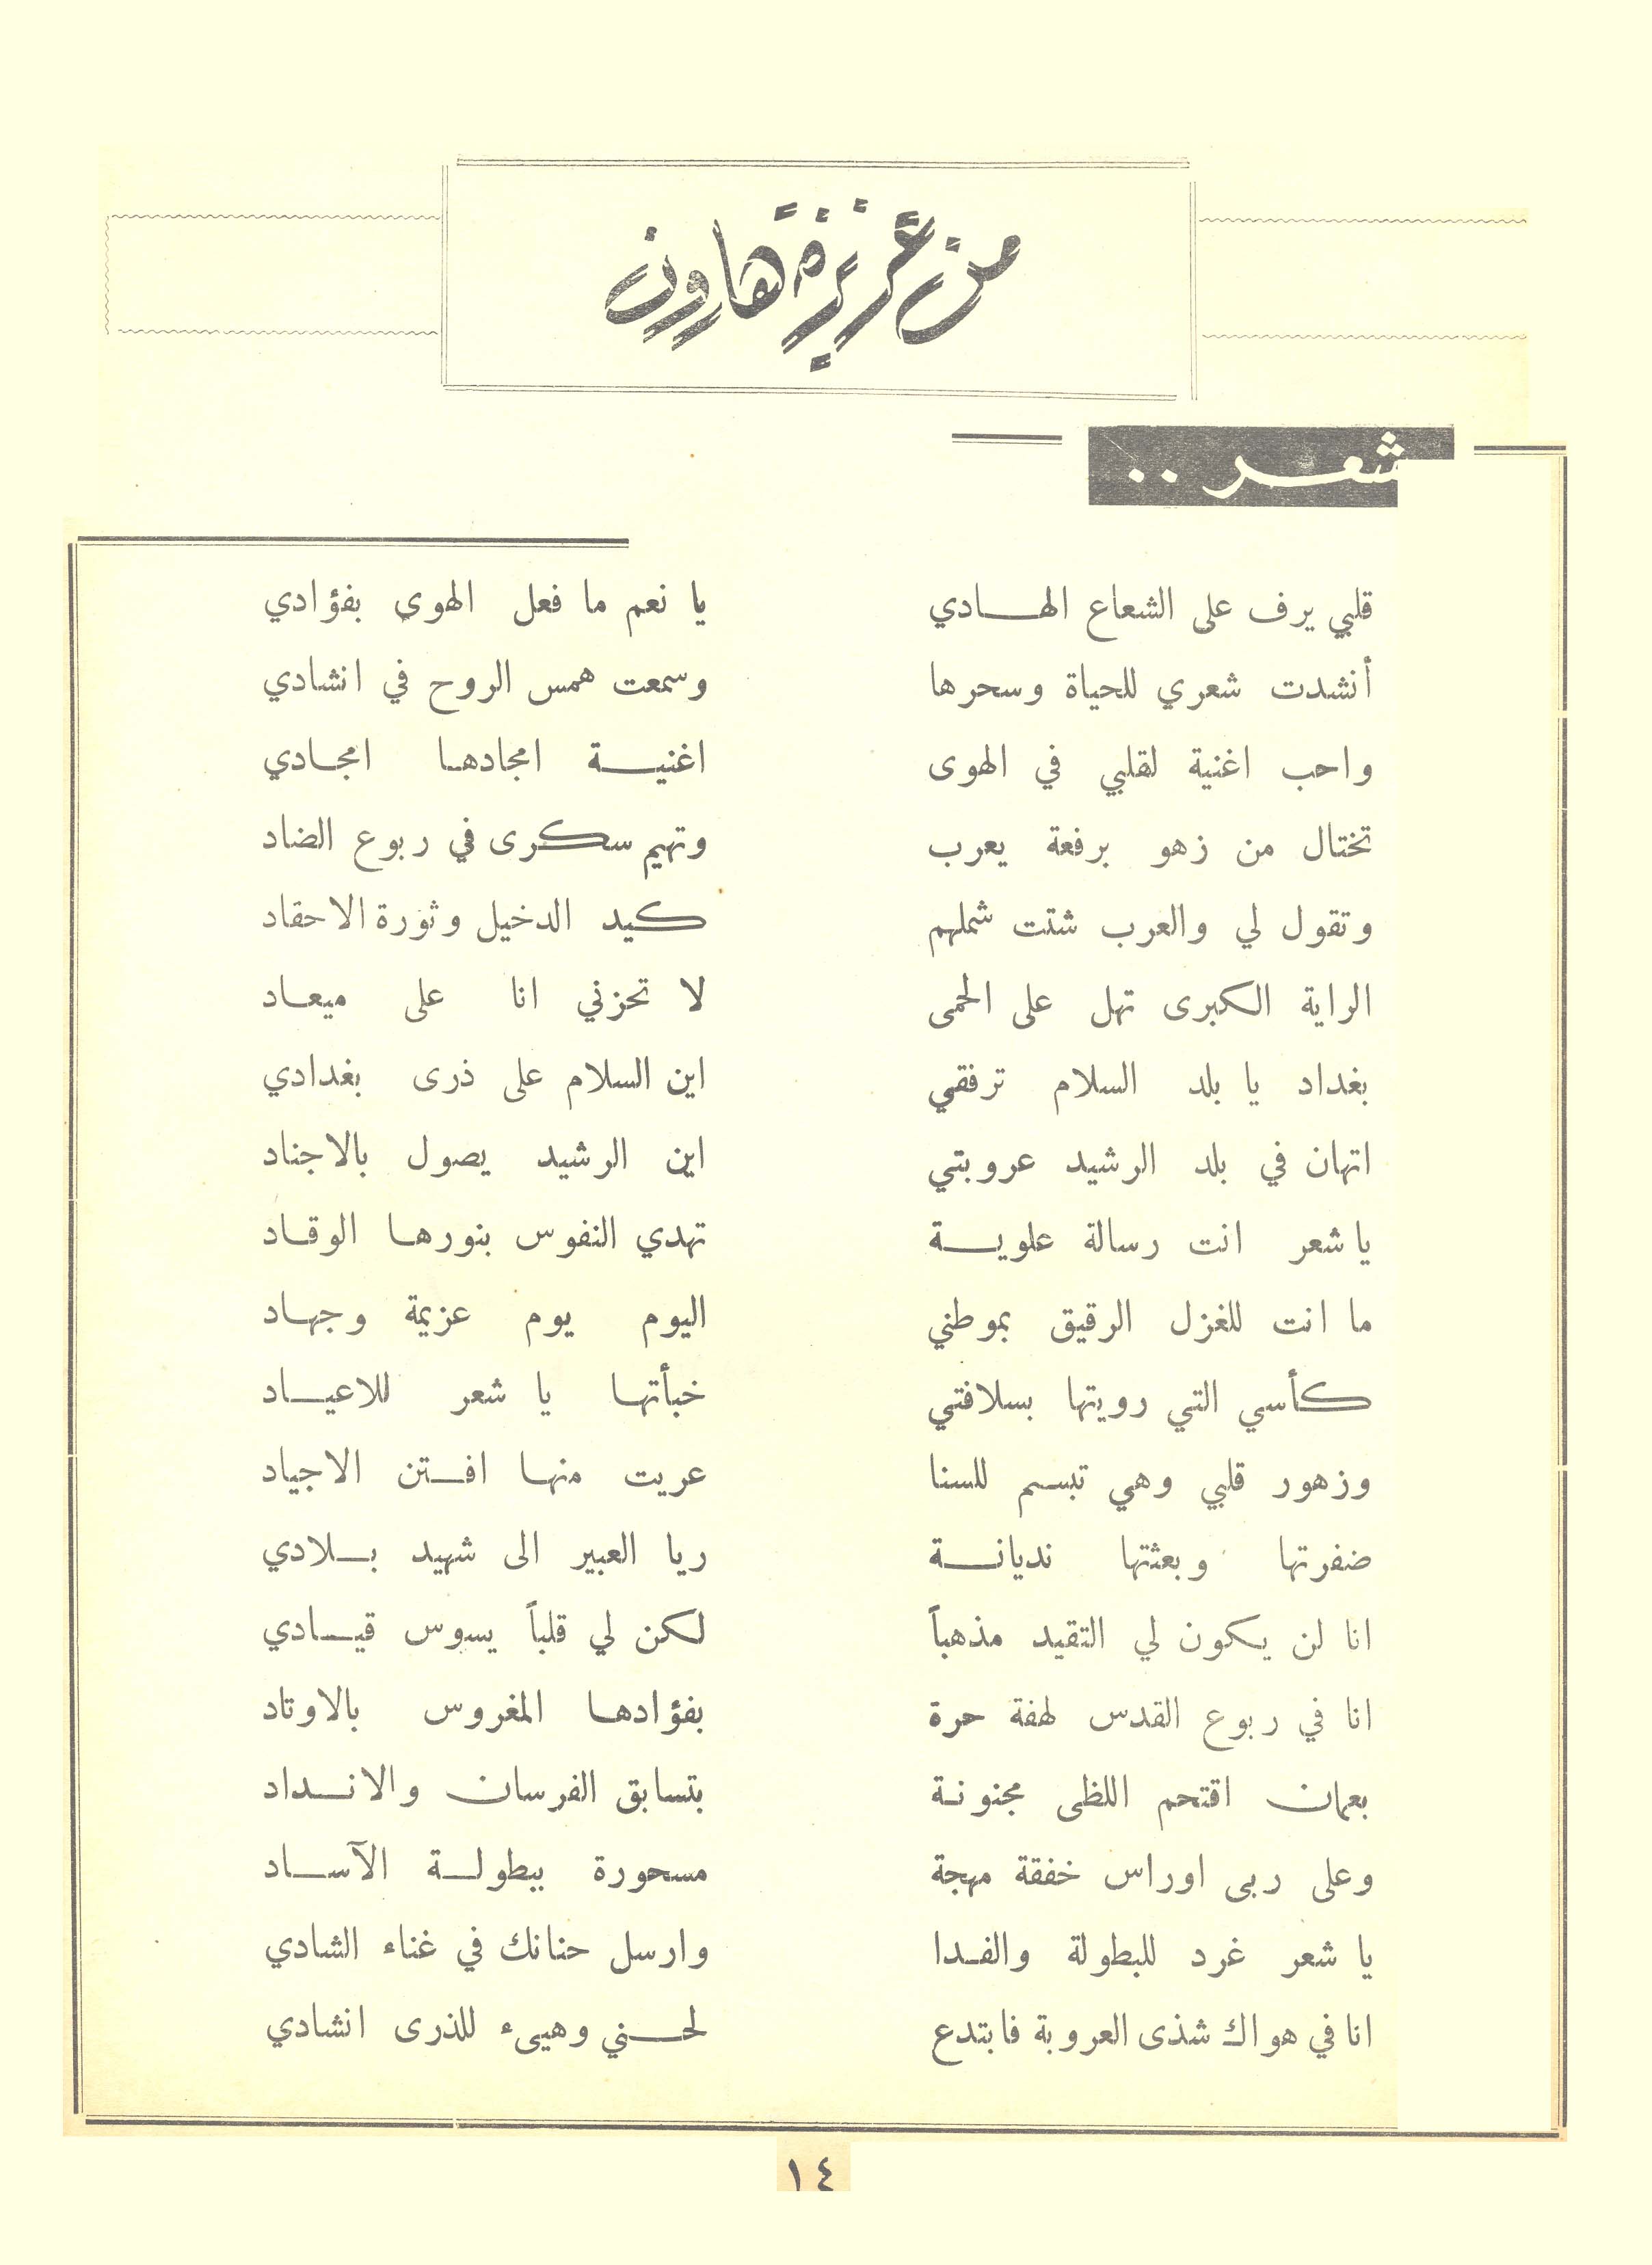 من عزيزة هارون
شعر ..
قلبي يرف على الشعاع الهـادي يا نعم ما فعل الهوى بفؤادي
أنشدت شعري للحياة وسحرها وسمعت همس الروح في انشادي
واحب اغنية لقلبي في الهوى اغنيـة امجادها امجـادي
تختال من زهو برفعة يعرب وتهيم سكرى في ربوع الضاد
وتقول لي والعرب شتت شملهم كيد الدخيل وثورة الاحقاد
الراية الكبرى تهل على الحمى لا تحزني انا على ميعـاد
بغداد يا بلد السلام ترفقي اين السلام على ذرى بغدادي
اتهان في بلد الرشيد عروبتي اين الرشيد يصول بالاجناد
يا شعر انت رسالة علويـة تهدي النفوس بنورهـا الوقـاد
ما انت للغزل الرقيق بموطني اليوم يوم عزيمة وجهـاد
كأسي التي رويتها بسلافتي خبأتهـا يا شعر للاعيـاد
وزهور قلبي وهي تبسم للسنا عريت منهـا افـتن الاجياد
ضفرتها وبعثتها نديانـة ريا العبير الى شهيد بـلادي
انا لن يكون لي التقيد مذهباً لكن لي قلباً يسوس قيـادي
انا في ربوع القدس لهفة حرة بفؤادهـا المغروس بالاوتاد
بعمان اقتحم اللظى مجنونـة بتسابق الفرسان والانـداد
وعلى ربى اوراس خفقة مهجة مسحورة ببطولـة الآسـاد
يا شعر غرد للبطولة والفـدا وارسل حنانك في غناء الشادي
انا في هواك شذى العروبة فابتدع لحـني وهيىء للذرى انشادي
١٤